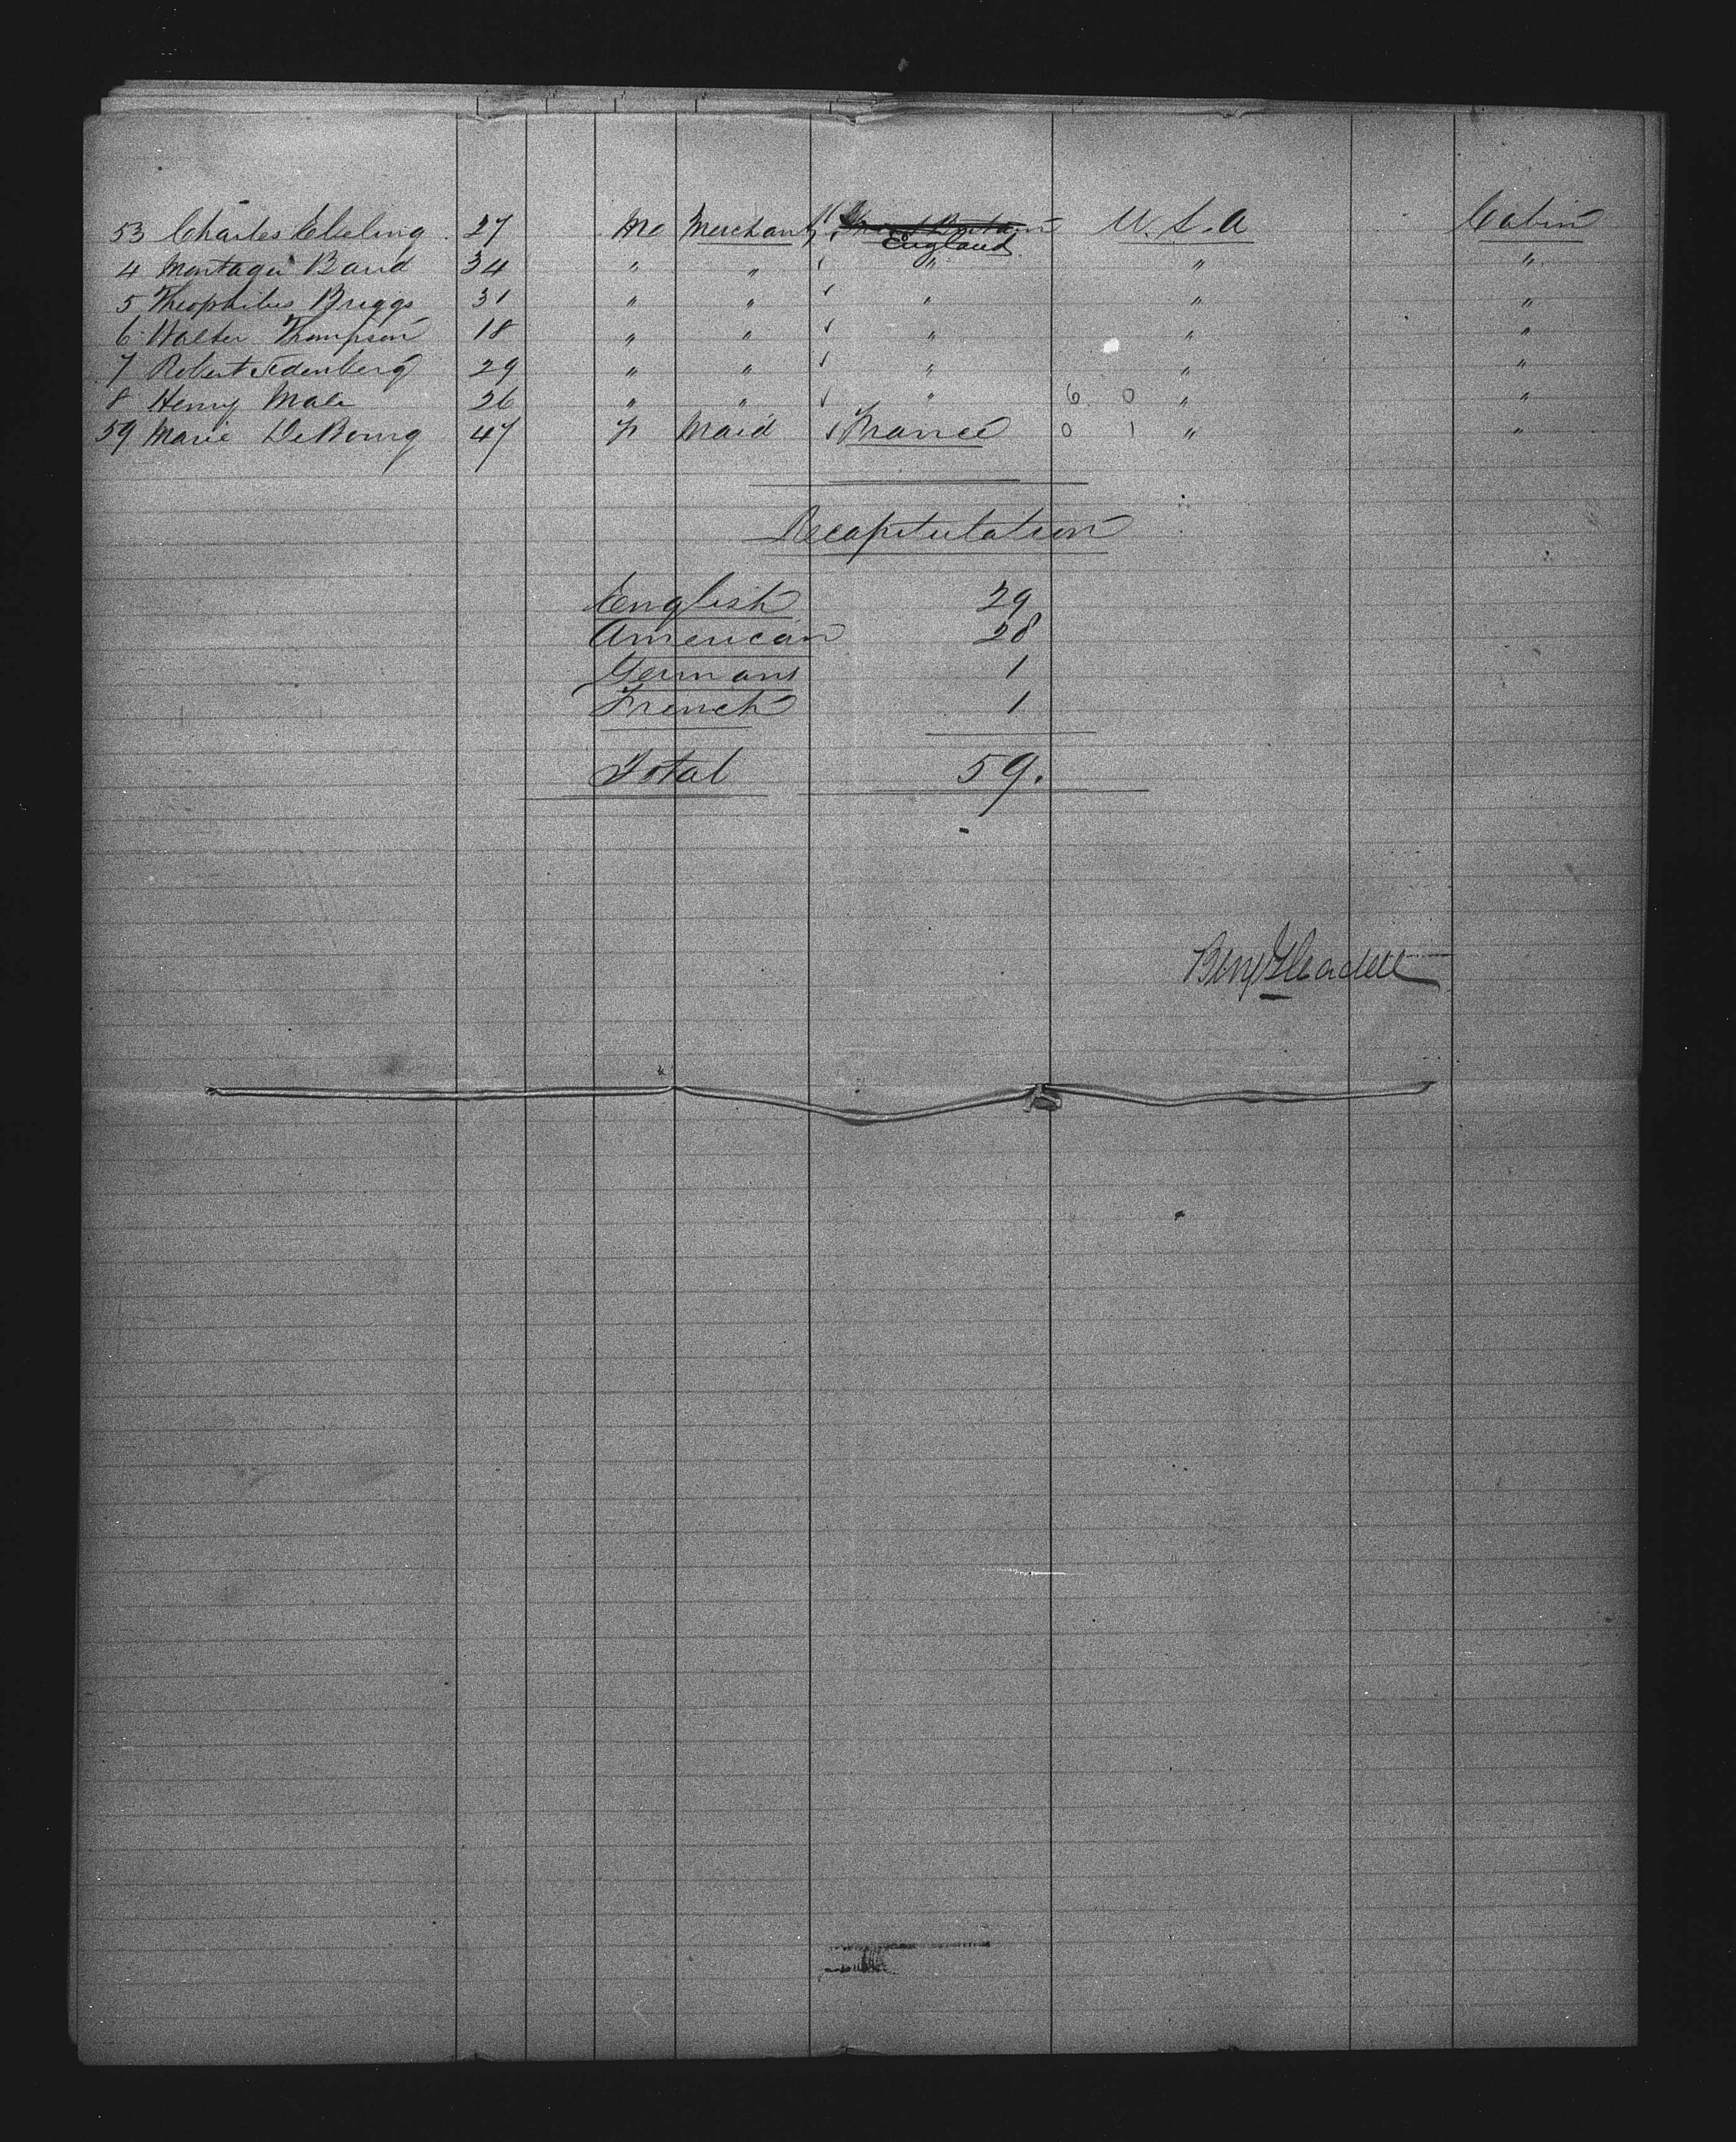 53 Charles Ebeling 27 M Merchant Great Britain U.S.A Cabin
England
4 Montagu Band 34 " " " " "
5 Theophilus Briggs 31 " " " " "
6 Walter Thompson 18 " " " " "
7 Robert 29 " " " " "
8 Henry Male 26 " " " 6 0 " "
59 Marie DeBourg 47 F Maid France 0 1 " "
Recapitulation
English 29
American 28
Germans 1
French 1
Total 59.
Benj Gleadell